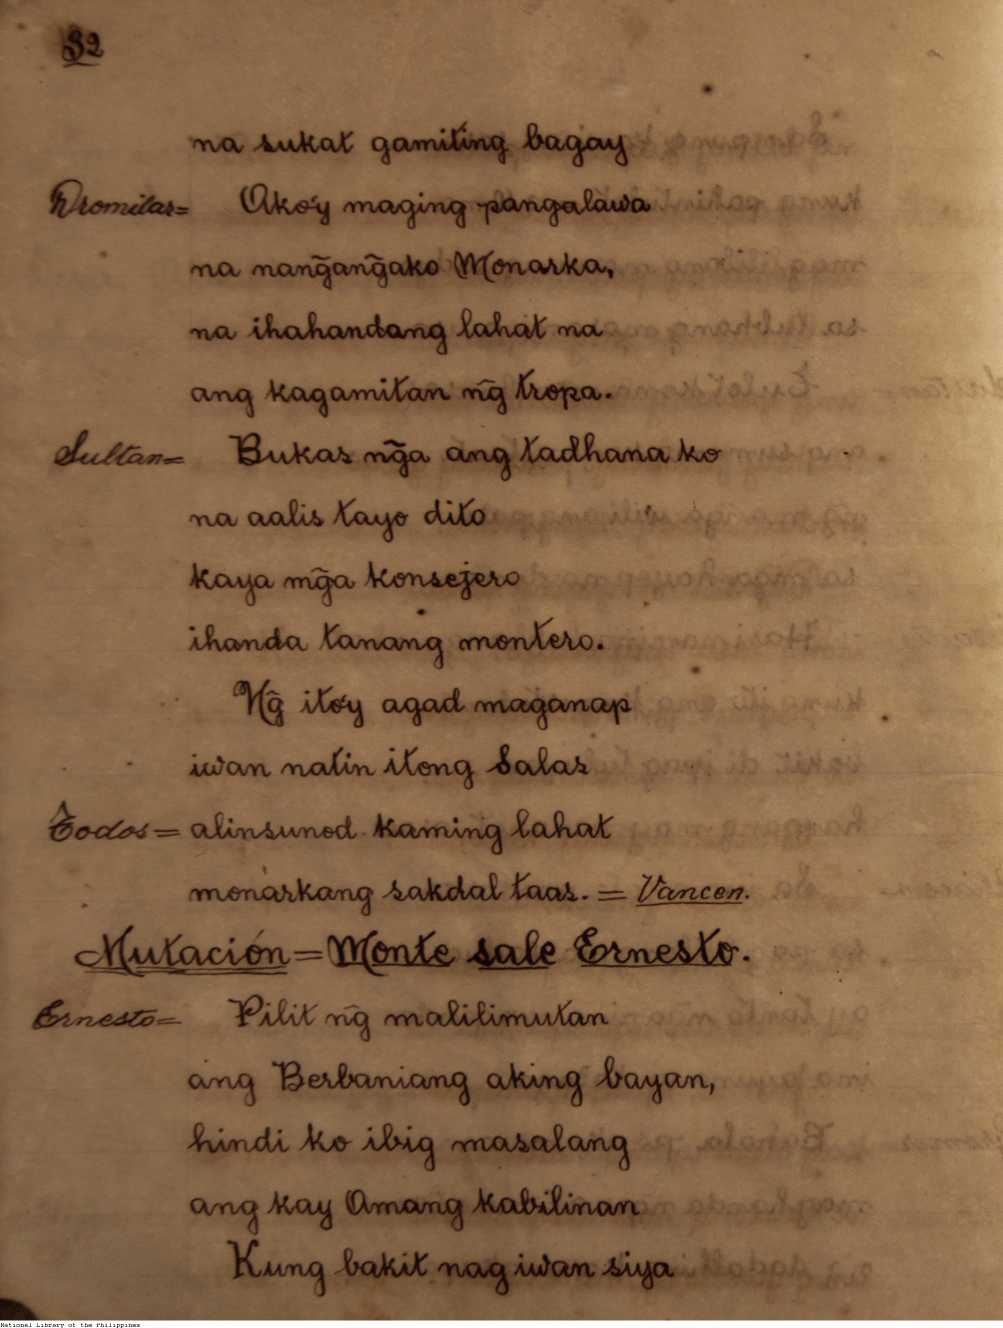 32
na sukat gamiting bagay
Dromilas= Ako'y maging pangalawa
na nang̃ang̃ako Monarka,
na ihahandang lahat na
ang kagamitan ng̃ tropa.
Sultan= Bukas ng̃a ang tadhana ko
na aalis tayo dito
kaya mg̃a konsejero
ihanda tanang montero.
Ng̃ ito'y agad maganap
iwan natin itong Salas
Todos= alinsunod kaming lahat
monarkang sakdal taas. = Vancen.
Mutación = Monte sale Ernesto.
Ernesto= Pilit ng̃ malilimutan
ang Berbaniang aking bayan,
hindi ko ibig masalang
ang kay Amang kabilinan
Kung bakit nag iwan siya
National Library of the Philippines